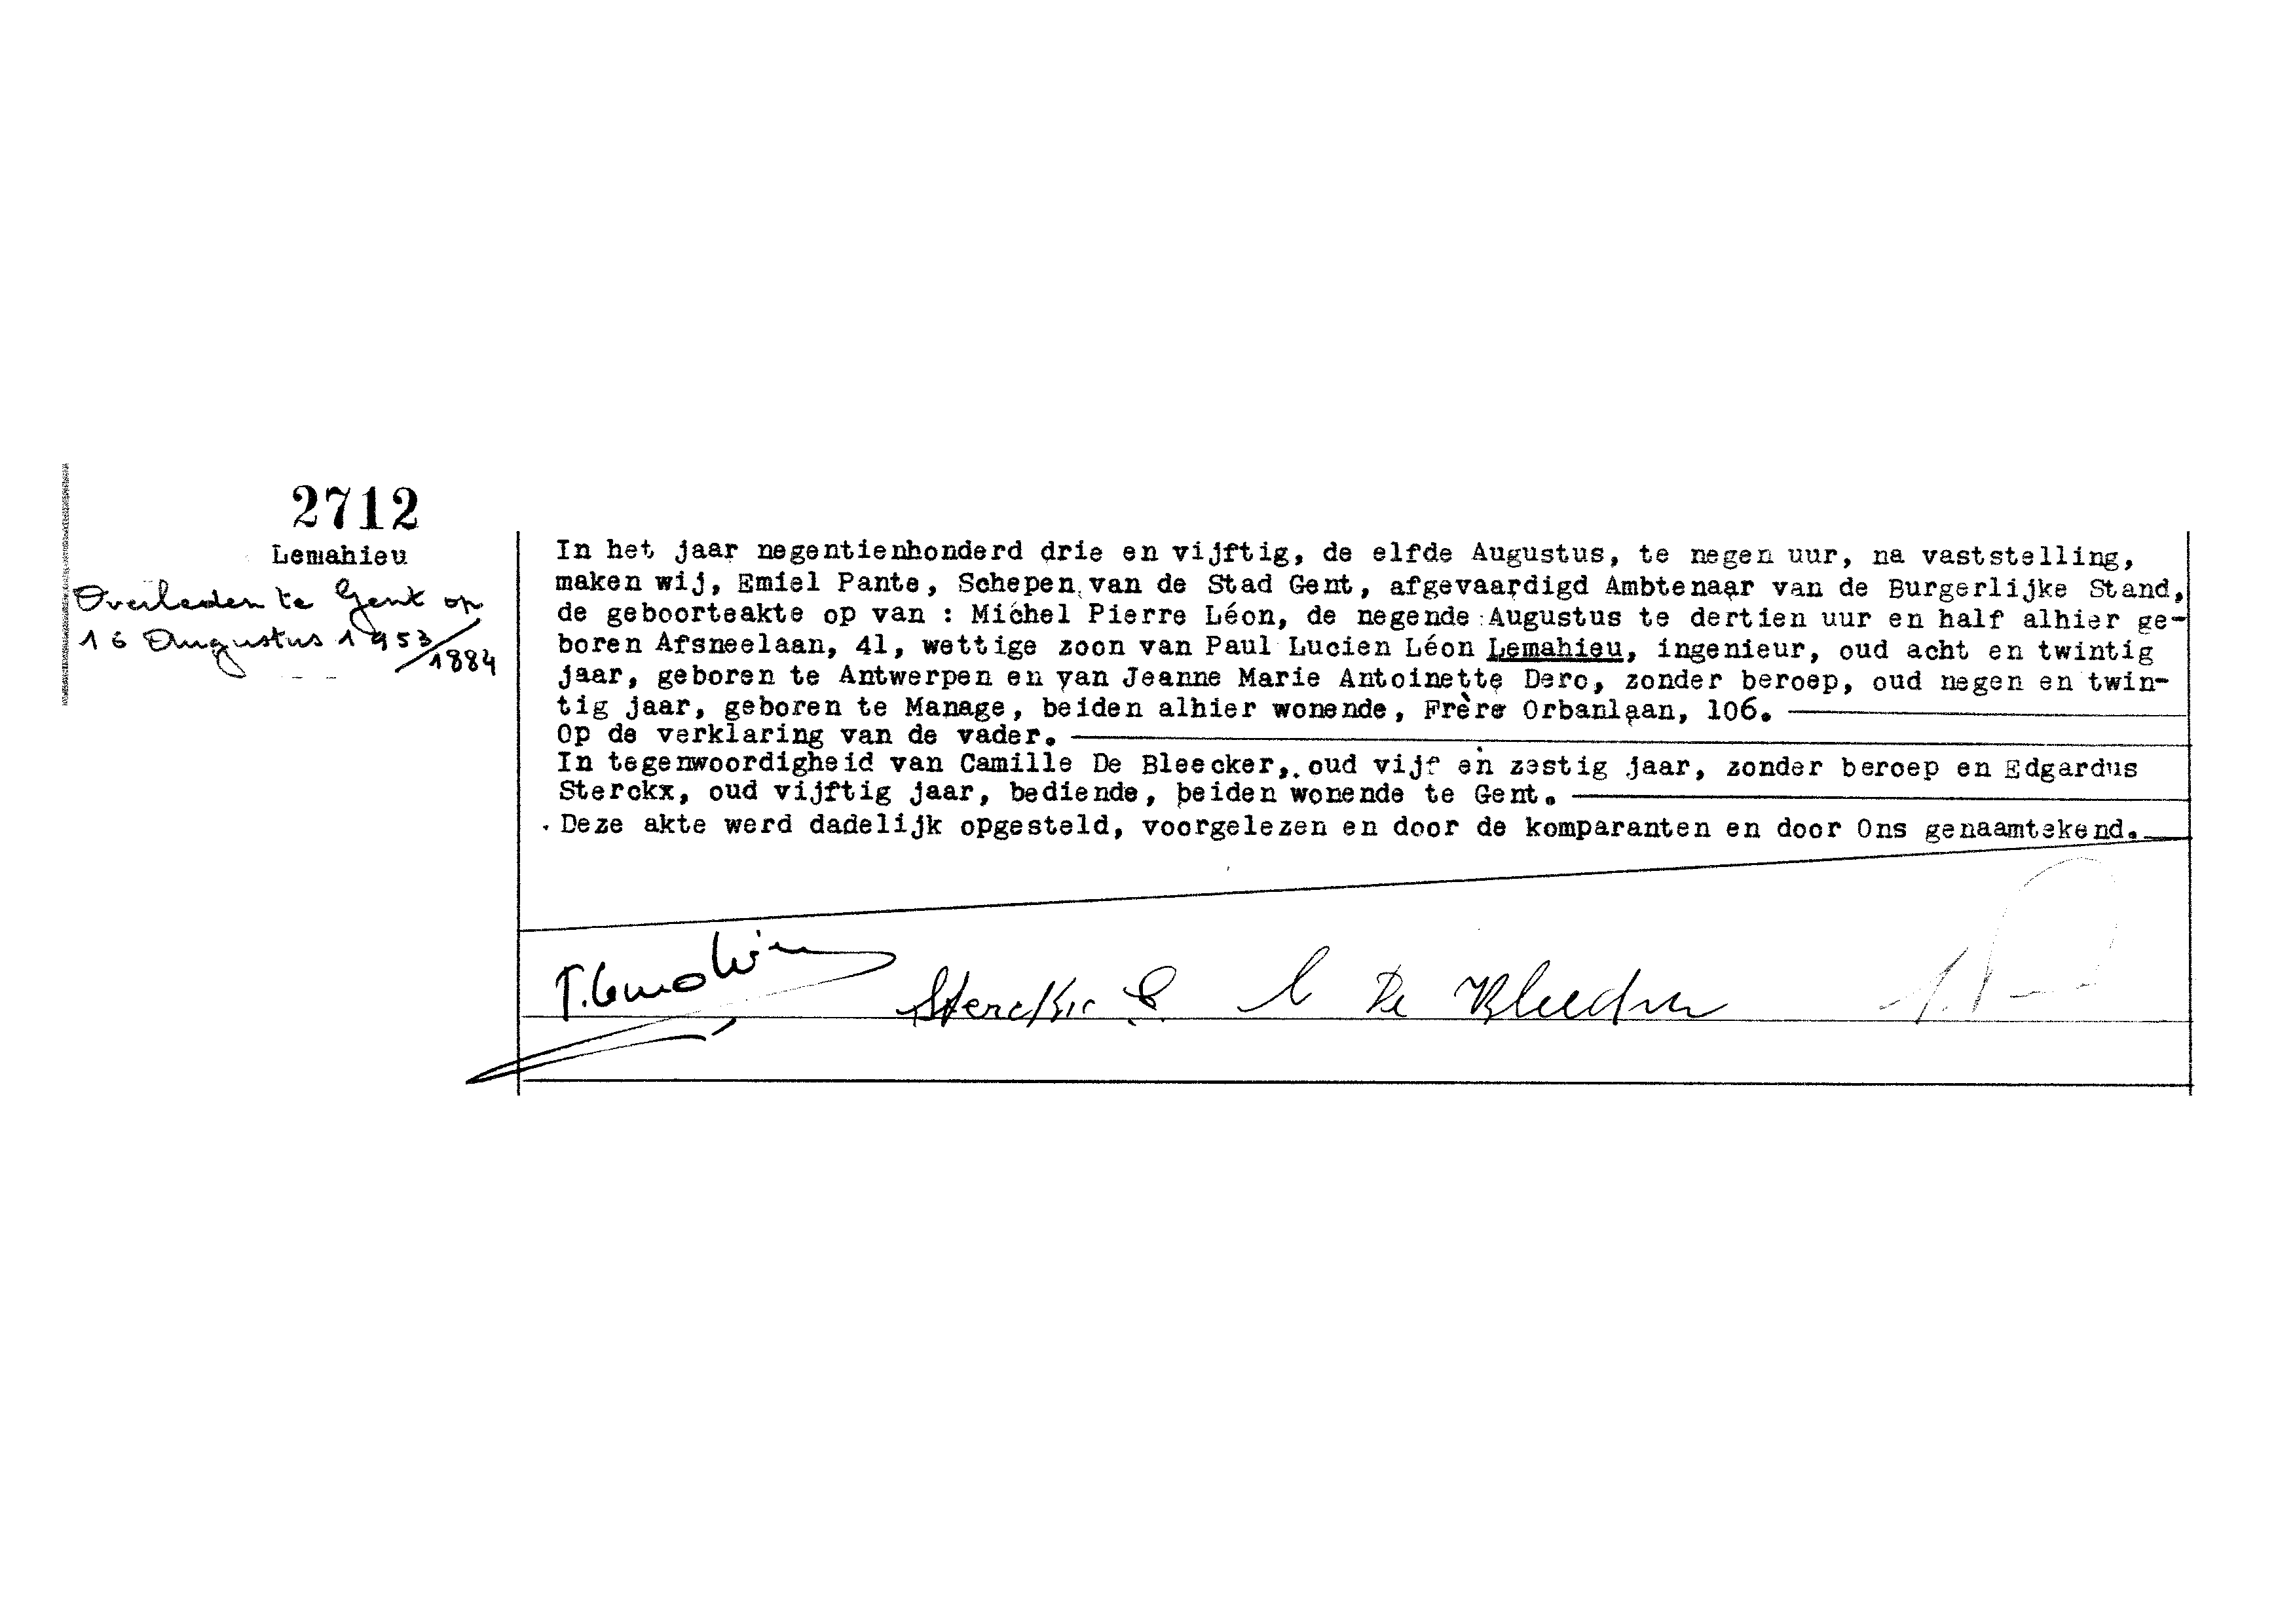 2712
Lemahieu
Overleden te Gent op
16 Augustus 1953/1884
In het jaar negentienhonderd drie en vijftig, de elfde Augustus, te negen uur, na vaststelling,
maken wij, Emiel Pante, Schepen van de Stad Gent, afgevaardigd Ambtenaar van de Burgerlijke Stand,
de geboorteakte op van : Michel Pierre Léon, de negende Augustus te dertien uur en half alhier ge-
boren Afsneelaan, 41, wettige zoon van Paul Lucien Léon Lemahieu, ingenieur, oud acht en twintig
jaar, geboren te Antwerpen en van Jeanne Marie Antoinette Derc, zonder beroep, oud negen en twin-
tig jaar, geboren te Manage, beiden alhier wonende, Frère Orbanlaan, 106.
Op de verklaring van de vader.
In tegenwoordigheid van Camille De Bleecker, oud vijf en zestig jaar, zonder beroep en Edgardus
Sterckx, oud vijftig jaar, bediende, beiden wonende te Gent.
Deze akte werd dadelijk opgesteld, voorgelezen en door de komparanten en door Ons genaamtekend.
P. Lemahieu Sterckx E. C De Bleecker